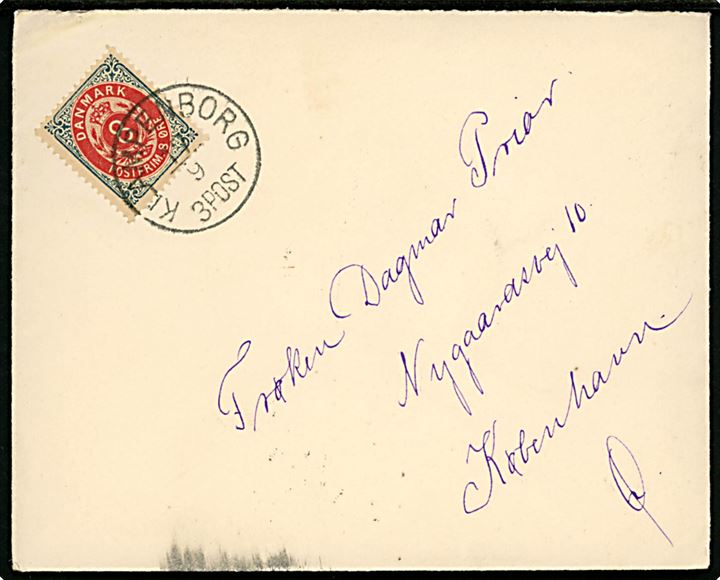 DANMARK
8
POSTFRIM. 8 ØRE
KLAMPENBORG
9
3POST
Frøken Dagmar Prior
Nygaardsvej 10.
København.
Ø